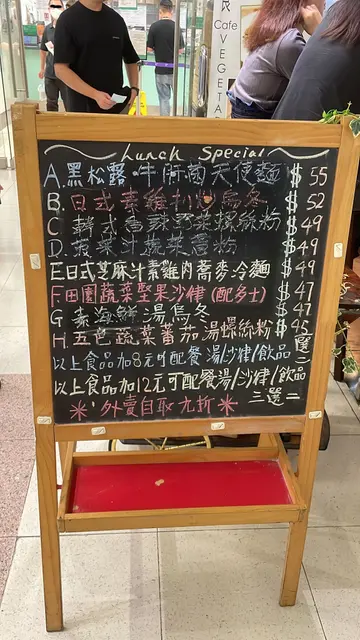 Cafe
VEGETA
Lunch Special
A. 黑松露牛肝菌天使麵 $55
B. 日式素雞利沙烏冬 $52
C 韓式香辣野菜螺絲粉 $49
D. 菠菜汁蔬菜薏粉 $49
E 日式芝麻汁素雞肉蕎麥冷麵 $49
F 田園蔬菜堅果沙律 (配多士) $47
G 素海鮮湯烏冬 $47
H 五色蔬菜蕃茄湯螺絲粉 $45
以上食品加8元可配餐湯/沙律/飲品 三選一
以上食品加12元可配餐湯/沙律/飲品 三選二
* 外賣自取九折 *